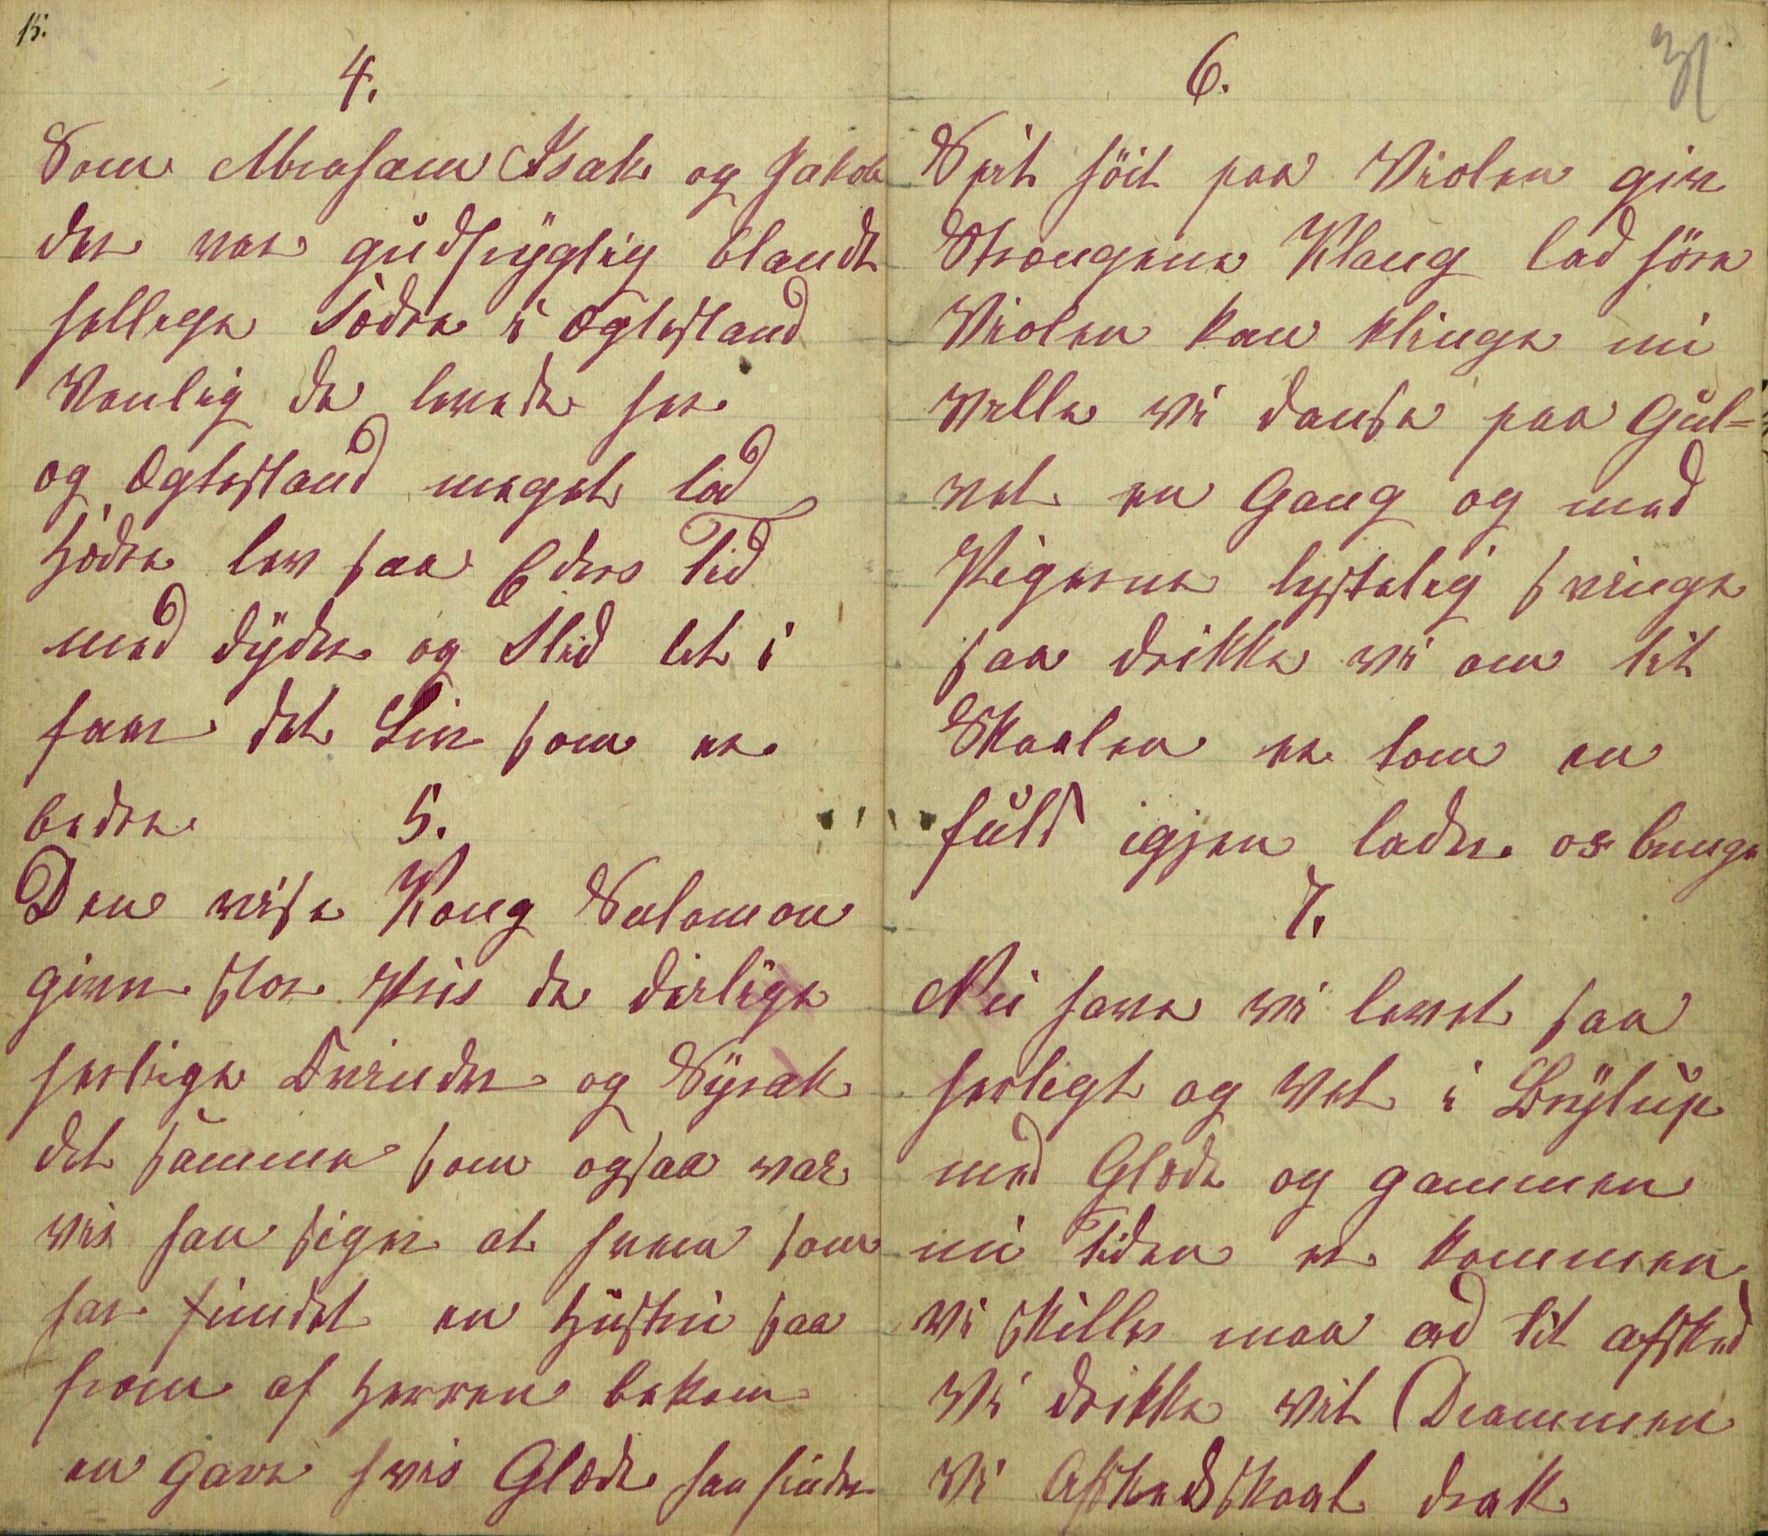 15.
4.
Som Abraham Isak og Jakob
der var gudfrygtig blandt
hellige Fædre i Ægtestand
Venlig de levede her
og Ægtestand meget lod
hædre lev saa Eders Tid
med dyder og Flid let i
faar det Liv som er
bedre
5.
Den vise Kong Salomon
giver stor Priis de deilige
herlige Qvinder og Syrak
det samme som ogsaa var
viis han siger at hvem som
har fundet en Hustru saa
from af Herren bekom
en Gave hvis Glæde han finder
31
6.
Spil høit paa Violen giv
Strængene Klang lad høre
Violen kan klinge nu
ville vi danse paa Gul=
vet en Gang og med
Pigerne lystelig svinge
saa drikke vi om lit
Skaalen er tom en
fuld igjen lader os bringe
7.
Nu have vi levet saa
herligt og Vel i Bryllup
med Glæde og gammen
nu Tiden er kommen
vi skilles maa ad til afsked
Vi drikke vil Drammen
Vi Afskedsskaal drak